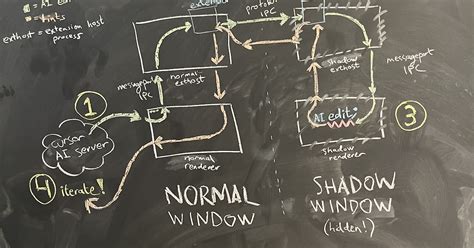 = AI edit
= hints
exthost = extension host
process
extension
protobuf
IPC
messageport
IPC
normal
exthost
shadow
exthost
messageport
IPC
1
cursor
AI server
normal
renderer
AI edit
shadow
renderer
3
4 iterate!
NORMAL
WINDOW
SHADOW
WINDOW
(hidden!)